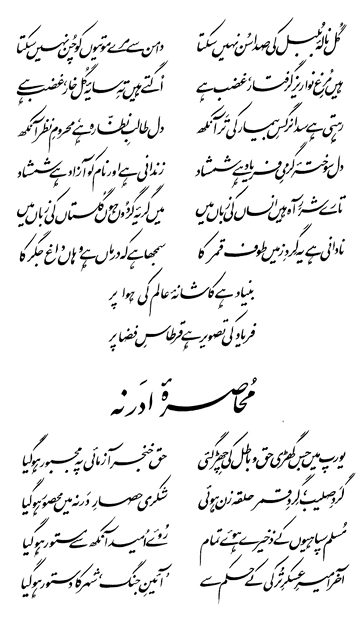 گل نالۂ بلبل کی صدا سن نہیں سکتا دامن سے مرے موتیوں کو چن نہیں سکتا
ہیں مرغِ نوا ریز گرفتار، غضب ہے اگتے ہیں تہِ سایۂ گل خار، غضب ہے
رہتی ہے سدا نرگسِ بیمار کی تر آنکھ دل طالبِ نظّارہ ہے محرومِ نظر آنکھ
دل سوختۂ گرمیِ فریاد ہے شمشاد زندانی ہے اور نام کو آزاد ہے شمشاد
تارے شررِ آہ ہیں انساں کی زباں میں میں گریۂ گردوں ہوں گلستاں کی زباں میں
نادانی ہے یہ گردِ زمیں طوف قمر کا سمجھا ہے کہ درماں ہے وہاں داغِ جگر کا
بنیاد ہے کاشانۂ عالم کی ہوا پر
فریاد کی تصویر ہے قرطاسِ فضا پر
محاصرۂ ادرنہ
یورپ میں جس گھڑی حق و باطل کی چھڑ گئی حق خنجر آزمائی پہ مجبور ہو گیا
گردِ صلیب، گردِ قمر حلقہ زن ہوئی شکری حصارِ درنہ میں محصور ہو گیا
مسلم سپاہیوں کے ذخیرے ہوئے تمام روئے امید آنکھ سے مستور ہو گیا
آخر امیرِ عسکرِ ترکی کے حکم سے ’آئینِ جنگ‘ شہر کا دستور ہو گیا